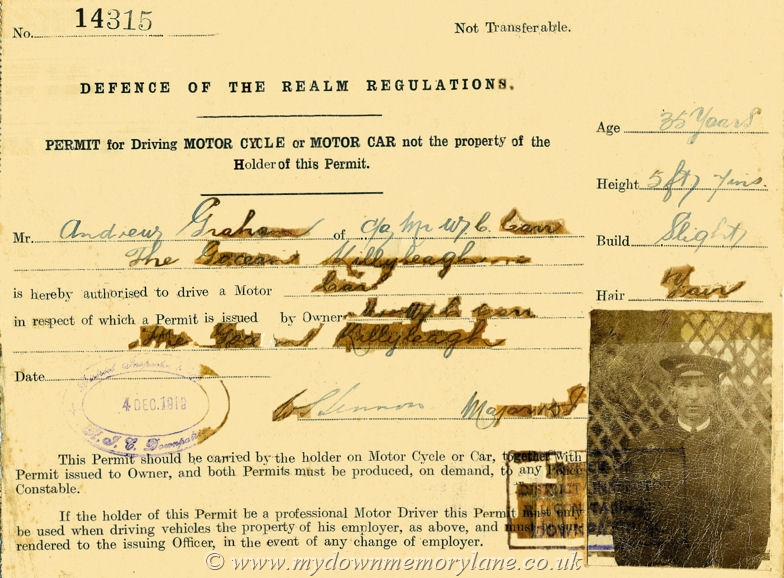 No. 14315
Not Transferable.
DEFENCE OF THE REALM REGULATIONS.
PERMIT for Driving MOTOR CYCLE or MOTOR CAR not the property of the
Holder of this Permit.
Age 35 Years
Height 5 ft 7 ins.
Build Slight
Hair Fair
Mr. Andrew Graham of c/o Mr W. C. Carr
The Killyleagh
is hereby authorised to drive a Motor Car
in respect of which a Permit is issued by Owner
The Killyleagh
Date
4 DEC. 1919
R. I. C. Downpatrick
Lennon Major
This Permit should be carried by the holder on Motor Cycle or Car, together with
Permit issued to Owner, and both Permits must be produced, on demand, to any Police
Constable.
If the holder of this Permit be a professional Motor Driver this Permit must only
be used when driving vehicles the property of his employer, as above, and must be sur-
rendered to the issuing Officer, in the event of any change of employer.
DISTRICT INSPECTOR
© www.mydownmemorylane.co.uk